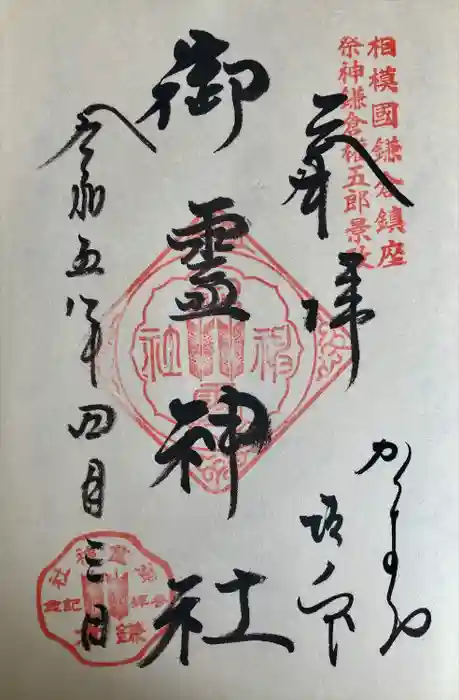 相模國鎌倉鎮座
祭神鎌倉權五郎景政
奉拝
かまくら
坂ノ下
御霊神社
令和五年四月三日